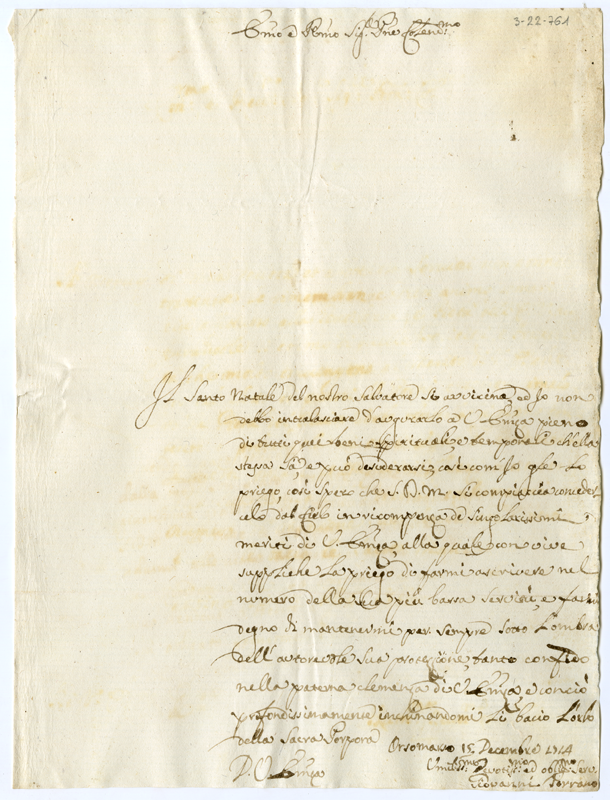 3-22-761
Emo e Rmo Sig.r Pne Colen.mo
Il Santo Natale del nostro Salvatore si avvicina, ed Io non
debbo intralasciare d'augurarlo a V. Emza pieno
di tutti quei beni spirituali, e temporali ch'ella
stessa sà, e può desiderarsi, e così com'Io gle lo
priego, così spero che S. D. M. si compiaccia conceder
celo dal Cielo in ricompenza de suoi
meriti di V. Emza, alla quale con vive
suppliche la priego di farmi ascrivere nel
numero della più bassa servitù, e farmi
degno di mantenermi per sempre sotto l'ombra
dell'autorevole sua protezzione, tanto confido
nella paterna clemenza di V. Emza, e con ciò
profondissimamente inchinandomi li bacio l'orlo
della Sacra Porpora
Orsomarzo 15 Decembre 1714
D. V. Emza
Umiliss.mo Devotiss.mo ed obblig.mo Serv.
Giovanni